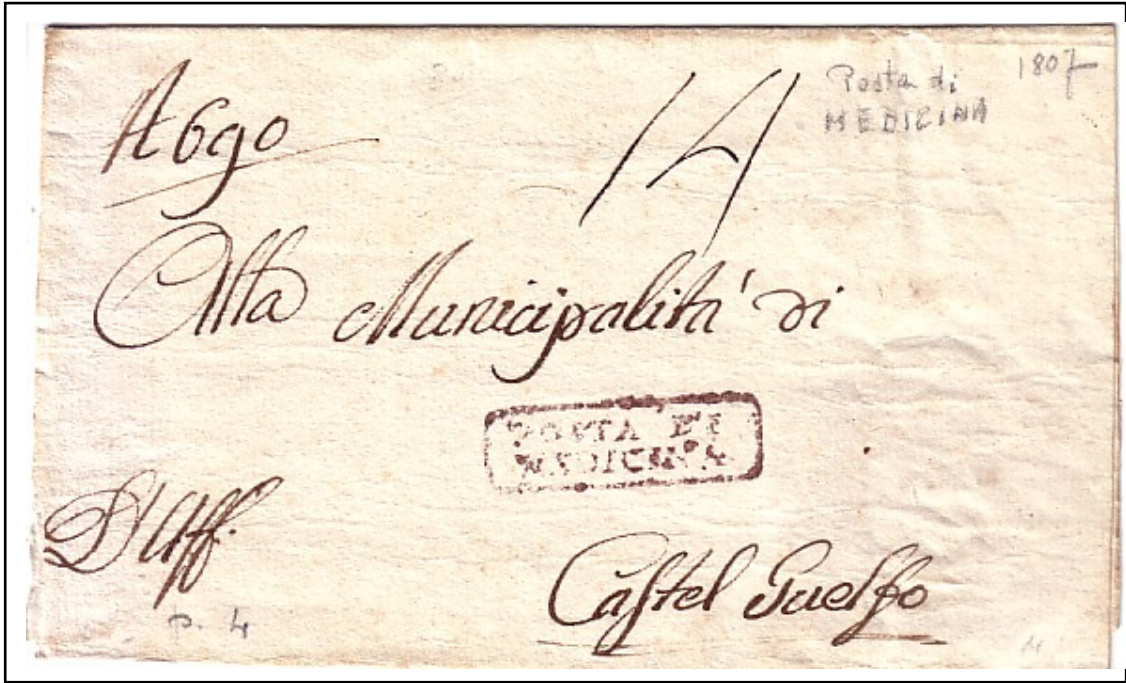 N 690
14
Posta di
MEDICINA
1807
Alla Municipalità di
POSTA DI
MEDICINA
D'Uff.
Castel Guelfo
p. 4